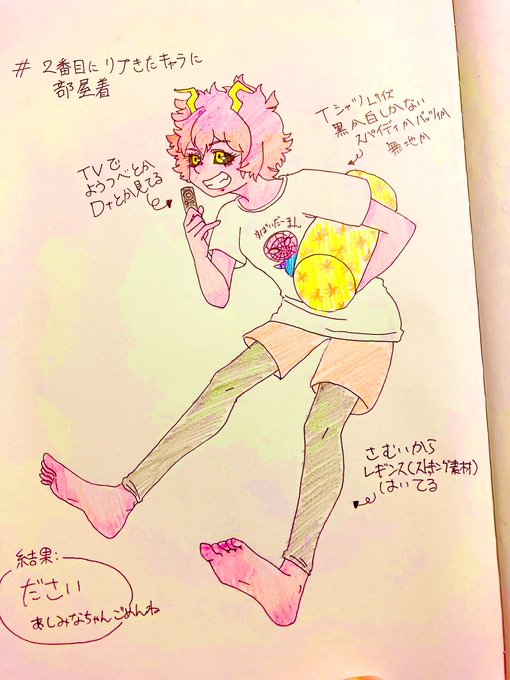 # 2番目にリプきたキャラに
部屋着
TVで
ようつべとか
D+とか見てる
Tシャツ Lサイズ
黒か白しかない
スパイディかバッツィか
無地か
すぱいだーまん
さむいから
レギンス(ストッキング素材)
はいてる
結果:
ださい
あしみなちゃんごめんね